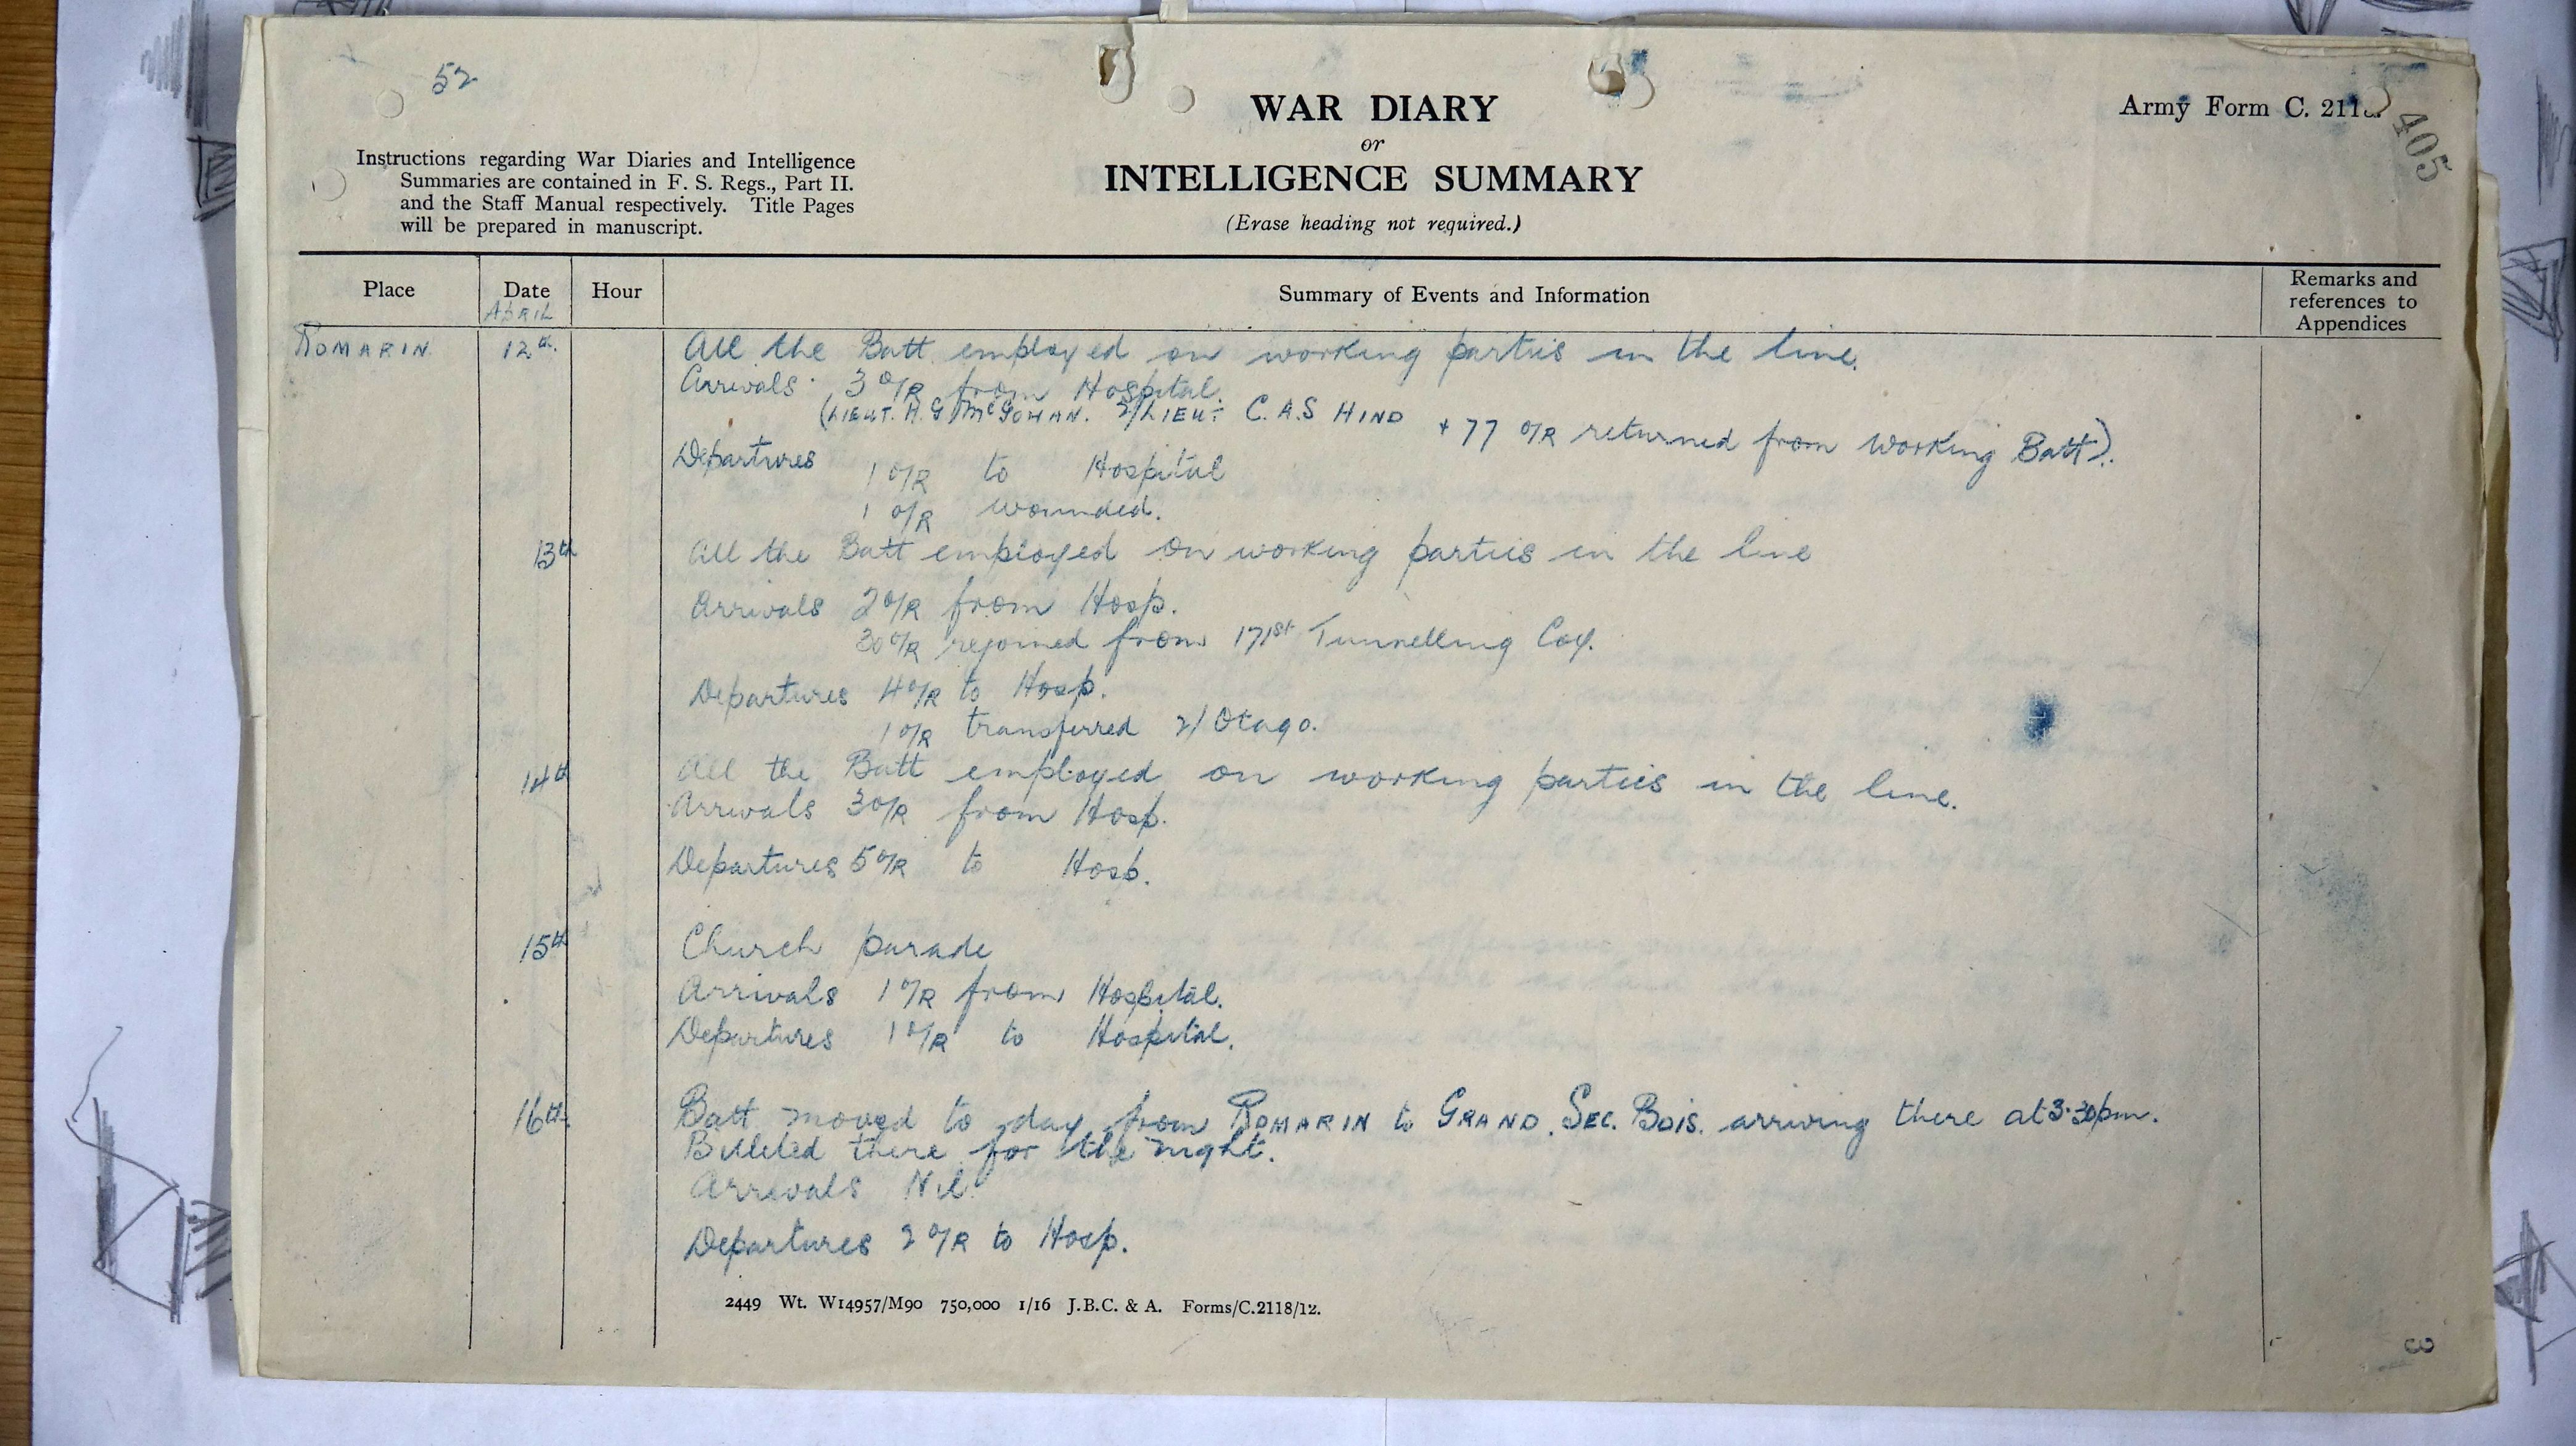 52
WAR DIARY
or
INTELLIGENCE SUMMARY
(Erase heading not required.)
Army Form C. 211
405
Instructions regarding War Diaries and Intelligence
Summaries are contained in F. S. Regs., Part II.
and the Staff Manual respectively. Title Pages
will be prepared in manuscript.
Place
Date
APRIL
Hour
Summary of Events and Information
Remarks and
references to
Appendices
ROMARIN. 12th. All the Batt employed on working parties in the line.
Arrivals. 3 O/R from Hospital.
(LIEUT. A. G. McGOHAN. 2/LIEUT C.A.S HIND + 77 O/R returned from working Batt).
Departures 1 O/R to Hospital
1 O/R wounded.
13th All the Batt employed on working parties in the line
Arrivals 2 O/R from Hosp.
30 O/R rejoined from 171st Tunnelling Coy.
Departures 4 O/R to Hosp.
1 O/R transferred 2/ Otago.
14th All the Batt employed on working parties in the line.
Arrivals 3 O/R from Hosp.
Departures 5 O/R to Hosp.
15th Church parade
Arrivals 1 O/R from Hospital.
Departures 1 O/R to Hospital.
16th. Batt moved to day from ROMARIN to GRAND. SEC. BOIS. arriving there at 3.30pm.
Billeted there for the night.
Arrivals Nil.
Departures 2 O/R to Hosp.
2449 Wt. W14957/M90 750,000 1/16 J.B.C. & A. Forms/C.2118/12.
3